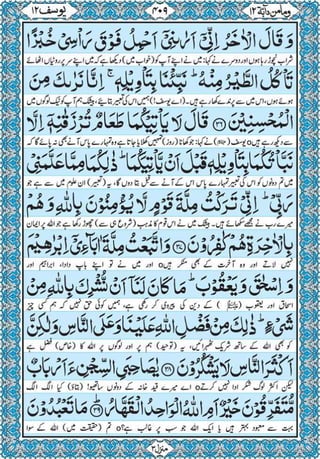 ومامن دآبۃ ۱۲ ۳۰۹ یوسف ۱۲
وَقَالَ الْاٰخَرُ اِنِّیْۤ اَرٰىنِیْۤ اَحْمِلُ فَوْقَ رَاْسِیْ خُبْزًا
شراب نچوڑ رہا ہوں اور دوسرے نے کہا: میں نے اپنے آپ کو (خواب میں) دیکھا ہے کہ میں اپنے سر پر روٹیاں اٹھائے
تَاْكُلُ الطَّیْرُ مِنْهُ ؕ نَبِّئْنَا بِتَاْوِیْلِهٖ ۚ اِنَّا نَرٰىكَ مِنَ
ہوئے ہوں، اس میں سے پرندے کھا رہے ہیں۔ (اے یوسف!) ہمیں اس کی تعبیر بتائیے، بیشک ہم آپ کو نیک لوگوں میں
الْمُحْسِنِیْنَ ﴿۳۶﴾ قَالَ لَا یَاْتِیْكُمَا طَعَامٌ تُرْزَقٰنِهٖۤ اِلَّا
سے دیکھ رہے ہیں o یوسف (علیہ السلام) نے کہا: جو کھانا (روز) تمہیں کھلایا جاتا ہے وہ تمہارے پاس آنے بھی نہ پائے گا کہ
نَبَّاْتُكُمَا بِتَاْوِیْلِهٖ قَبْلَ اَنْ یَّاْتِیَكُمَا ؕ ذٰلِكُمَا مِمَّا عَلَّمَنِیْ
میں تم دونوں کو اس کی تعبیر تمہارے پاس اس کے آنے سے قبل بتا دوں گا، یہ (تعبیر) ان علوم میں سے ہے جو
رَبِّیْ ؕ اِنِّیْ تَرَكْتُ مِلَّةَ قَوْمٍ لَّا یُؤْمِنُوْنَ بِاللّٰهِ وَهُمْ
میرے رب نے مجھے سکھائے ہیں۔ بیشک میں نے اس قوم کا مذہب (شروع ہی سے) چھوڑ رکھا ہے جو اللہ پر ایمان
بِالْاٰخِرَةِ هُمْ كٰفِرُوْنَ ﴿۳۷﴾ وَاتَّبَعْتُ مِلَّةَ اٰبَآءِیْۤ اِبْرٰهِیْمَ
نہیں لاتے اور وہ آخرت کے بھی منکر ہیں o اور میں نے تو اپنے باپ دادا، ابراہیم اور
وَاِسْحٰقَ وَیَعْقُوْبَ ؕ مَا كَانَ لَنَاۤ اَنْ نُّشْرِكَ بِاللّٰهِ مِنْ
اسحاق اور یعقوب (علیہم السلام) کے دین کی پیروی کر رکھی ہے، ہمیں کوئی حق نہیں کہ ہم کسی چیز
شَیْءٍ ؕ ذٰلِكَ مِنْ فَضْلِ اللّٰهِ عَلَیْنَا وَعَلَی النَّاسِ وَلٰكِنَّ
کو بھی اللہ کے ساتھ شریک ٹھہرائیں، یہ (توحید) ہم پر اور لوگوں پر اللہ کا (خاص) فضل ہے
اَكْثَرَ النَّاسِ لَا یَشْكُرُوْنَ ﴿۳۸﴾ یٰصَاحِبَیِ السِّجْنِ ءَاَرْبَابٌ
لیکن اکثر لوگ شکر ادا نہیں کرتے o اے میرے قید خانہ کے دونوں ساتھیو! (بتاؤ) کیا الگ الگ
مُّتَفَرِّقُوْنَ خَیْرٌ اَمِ اللّٰهُ الْوَاحِدُ الْقَهَّارُ ﴿۳۹﴾ مَا تَعْبُدُوْنَ
بہت سے معبود بہتر ہیں یا ایک اللہ جو سب پر غالب ہے؟ o تم (حقیقت میں) اللہ کے سوا
منزل ۳